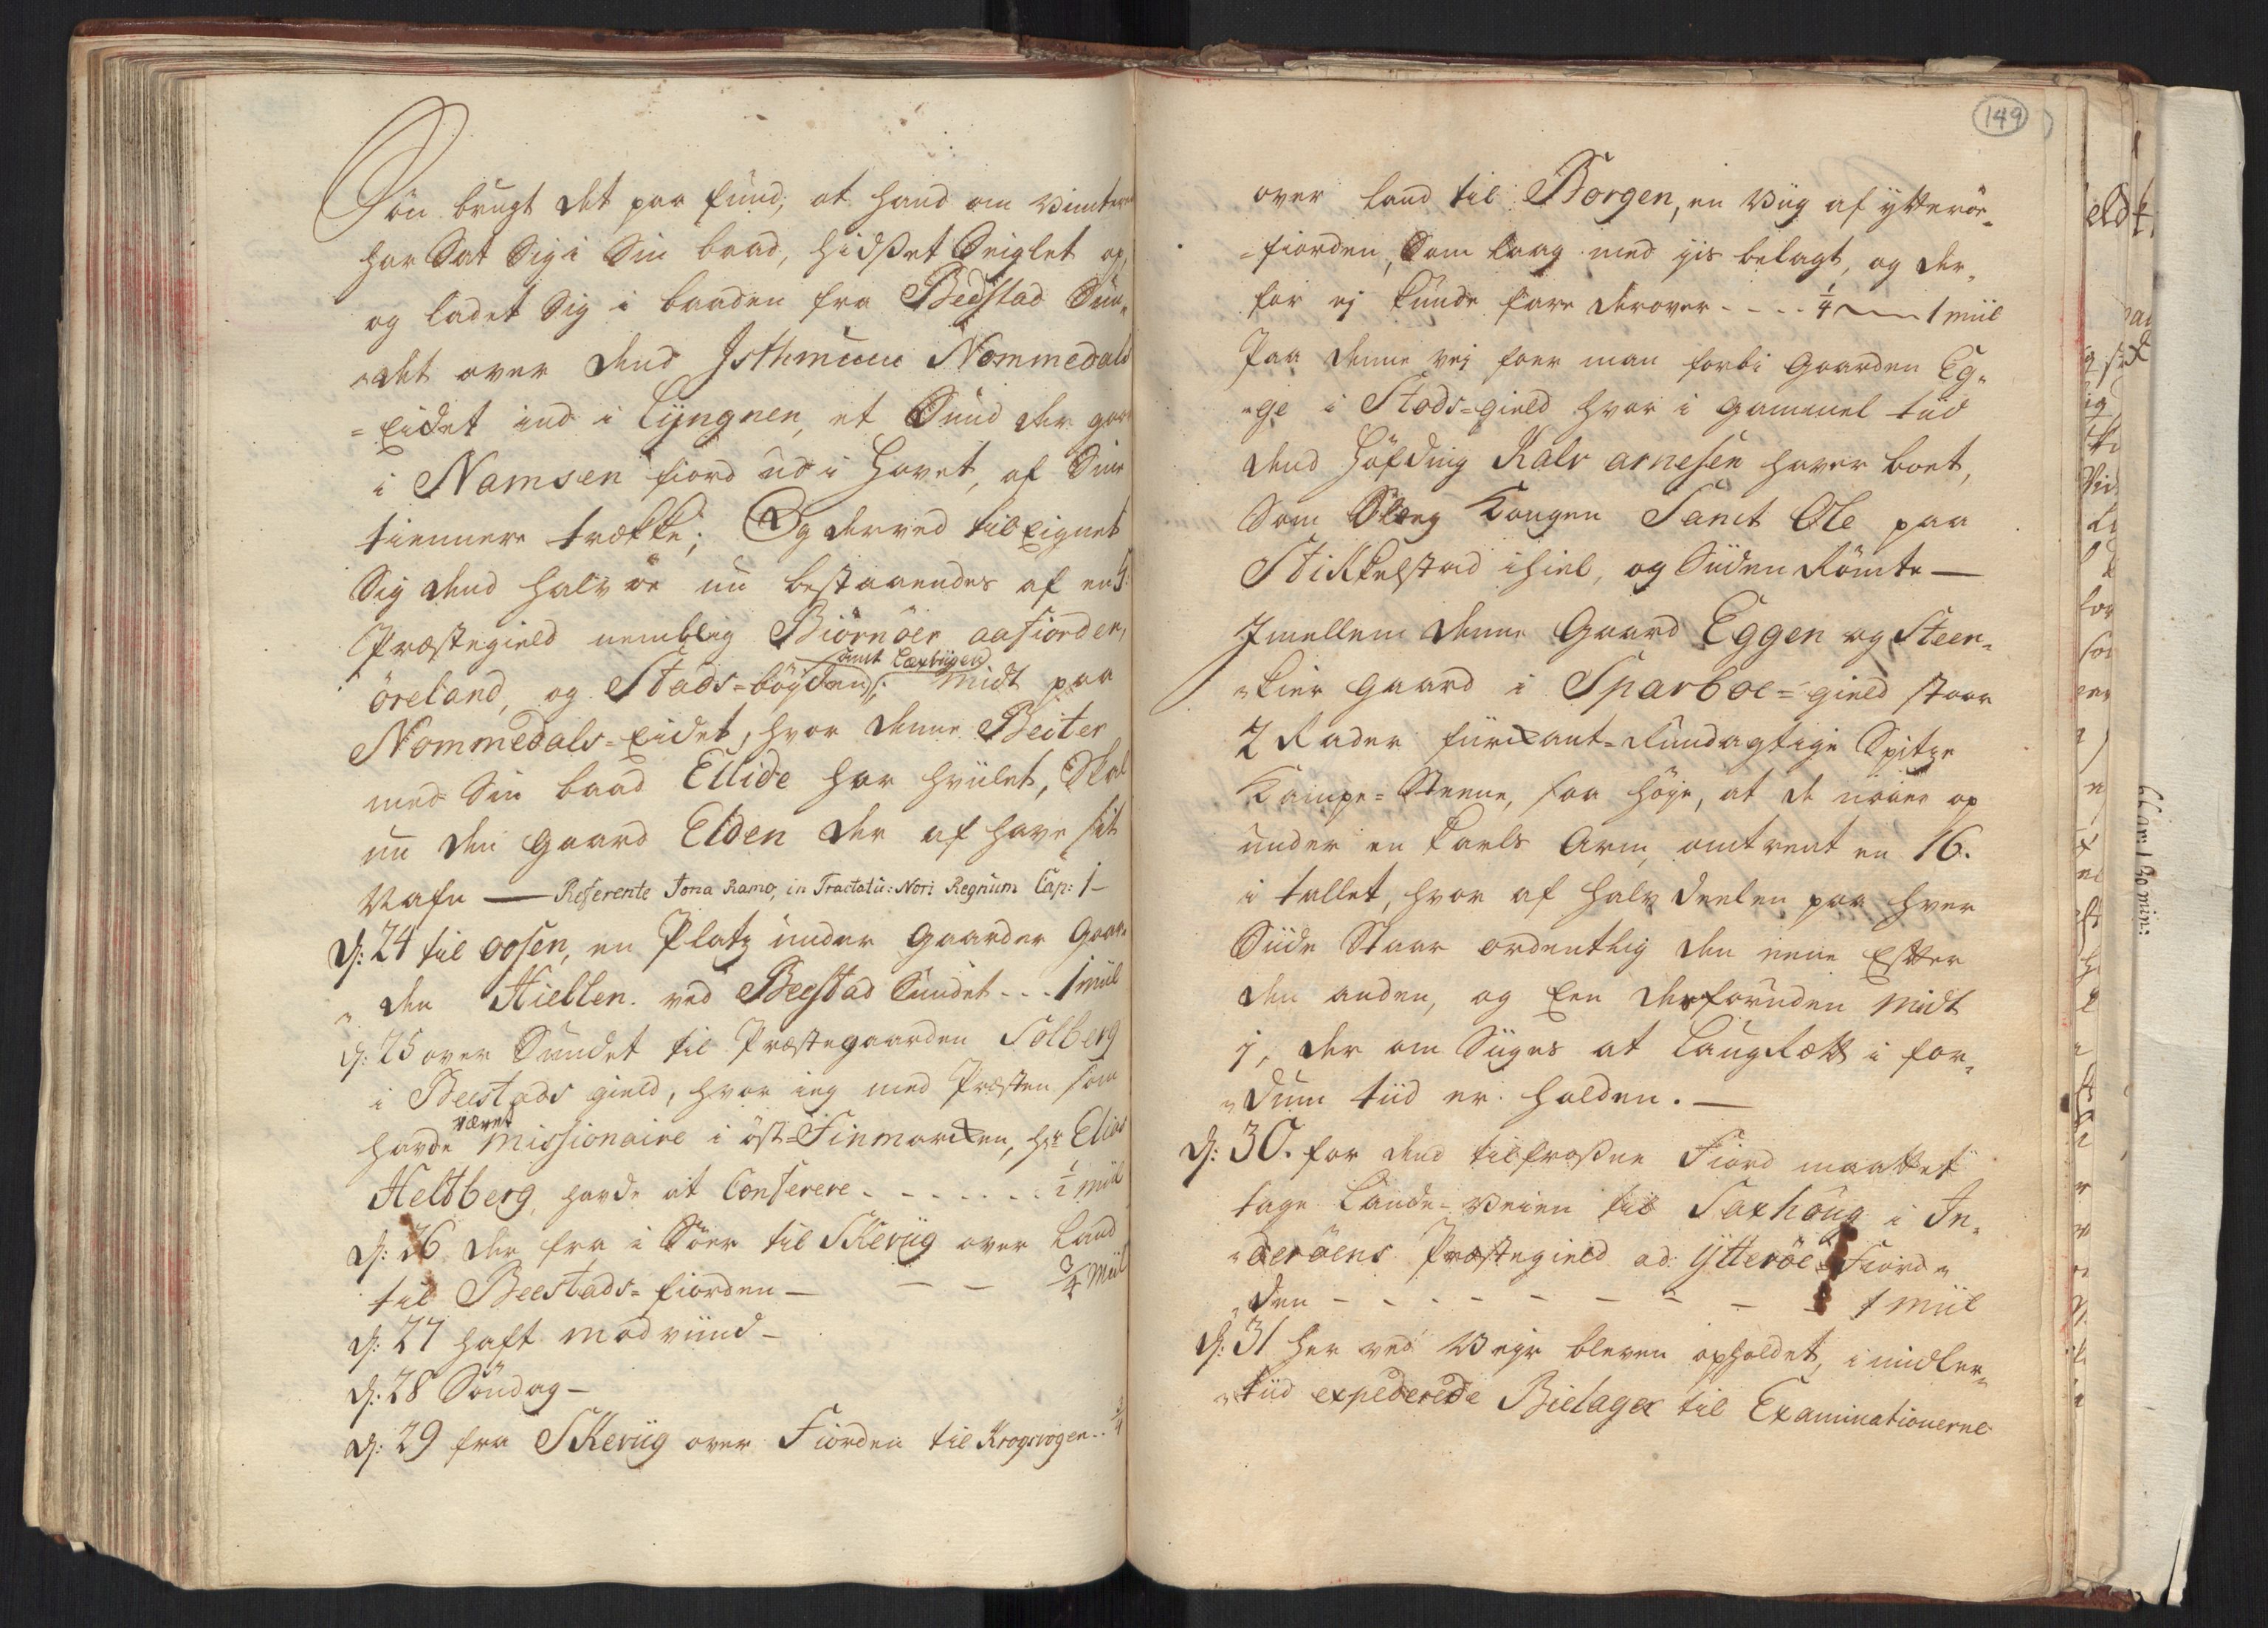 Søn brugt det paa fund, at hand om Vinteren
har Sat Sig i Sin baad, hidset Seiglet op,
og ladet Sig i baaden fra Bedstad Sun„
„det over dend Isthmum Nommedals
=Eidet ind i Lÿngnen, et Sund der gaar
i Namsen fiord ud i Havet, af Sine
tiennere trække; Og derved tilEignet
Sig dend halv øe nu bestaaendes af en 4
Præstegield nemblig Biörnöer, aafiorden,
samt Laxviigen
öreland, og Stads=böÿden; midt paa
Nommedals=Eidet, hvor denne Beiter
med Sin baad Ellide har hviilet, Skal
nu den gaard Elden der af have sit
Nafn — Referente Jona Ramo, in Tractatu: Nori Regnum Cap: 1 –
d: 24 til oosen, en Platz under gaarder Gaar„
„den Hiellen. ved Beestad Sundet - - - 1 miil
d: 25 over Sundet til Præstegaarden Solberg
i Beestads gield, hvor ieg med Præsten som
været
havde missionaire i öst=Finmarcken, Hr Elias
Heltberg, havde at Conferere - - - - - - - ½ miil
d: 26 der fra i Söer til SKevüg over Land
til Beestads=fiorden — — — ¾ Miil
d: 27 haft modviind –
d: 28 Söndag –
d: 29 fra SKevüg over Fiorden til Krogsvogen - - ¾
149
over land til Borgen, en Viig af ytteröe„
=fiorden, Som laag med jis belagt, og der„
for ej kunde fare derover - - - - ¼ — 1 miil
Paa denne vej foer man forbi Gaarden Eg„
„ge i Stods=gield hvor i gammel tiid
dend Höfding Kalv arnesen haver boet,
Som Slaeg Kongen Sanct Ole paa
StiKkelstad ihiel, og Siiden Römte —
Imellem denne Gaard Eggen og Steen„
„kier gaard i Sparboe=gield staar
2 Rader fiircant=Rundagtige Spitze
Kampe=Steene, saa höye, at de naaer op
under en Karls Arm, omtrent en 16.
i tallet, hvor af halv deelen paa hver
Siide Staar ordentlig den eene Efter
den anden, og Een derforuden midt
i, der om Siiges at LaugRætt i for„
„dum tiid er holden. —
d: 30. for dend tilfrosne Fiord maattet
tage Lande=Veien til Saxhoug i In„
„deröens Præstegield ad Ytteröe=Fiord„
„den - - - - - - - - - 1 miil
d: 31 her ved Veyr bleven opholdet, imidler„
„tiid expederede Bielager til Examinationerne